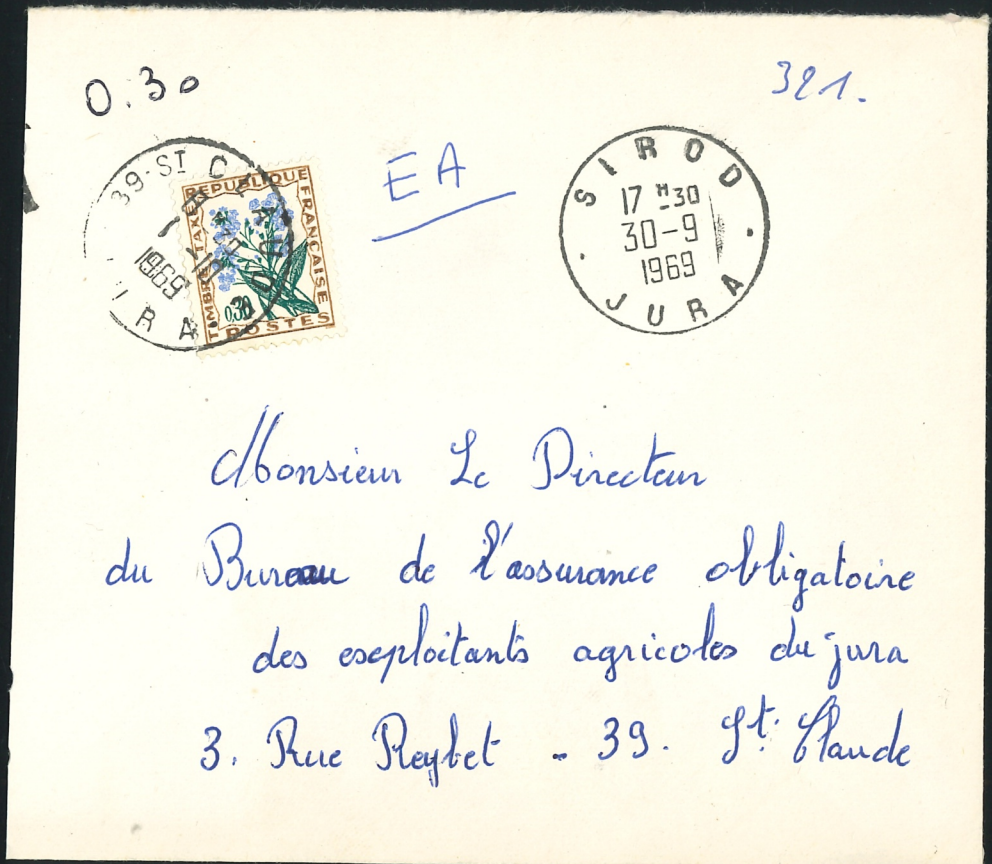 0.30
321.
EA
39-ST CLAUDE
1969
JURA
REPUBLIQUE
FRANCAISE
TIMBRE TAXE
0,30
POSTES
SIROD
17 H 30
30-9
1969
JURA
Monsieur Le Directeur
du Bureau de l'assurance obligatoire
des exploitants agricoles du jura
3. Rue Reybet - 39. St. Claude